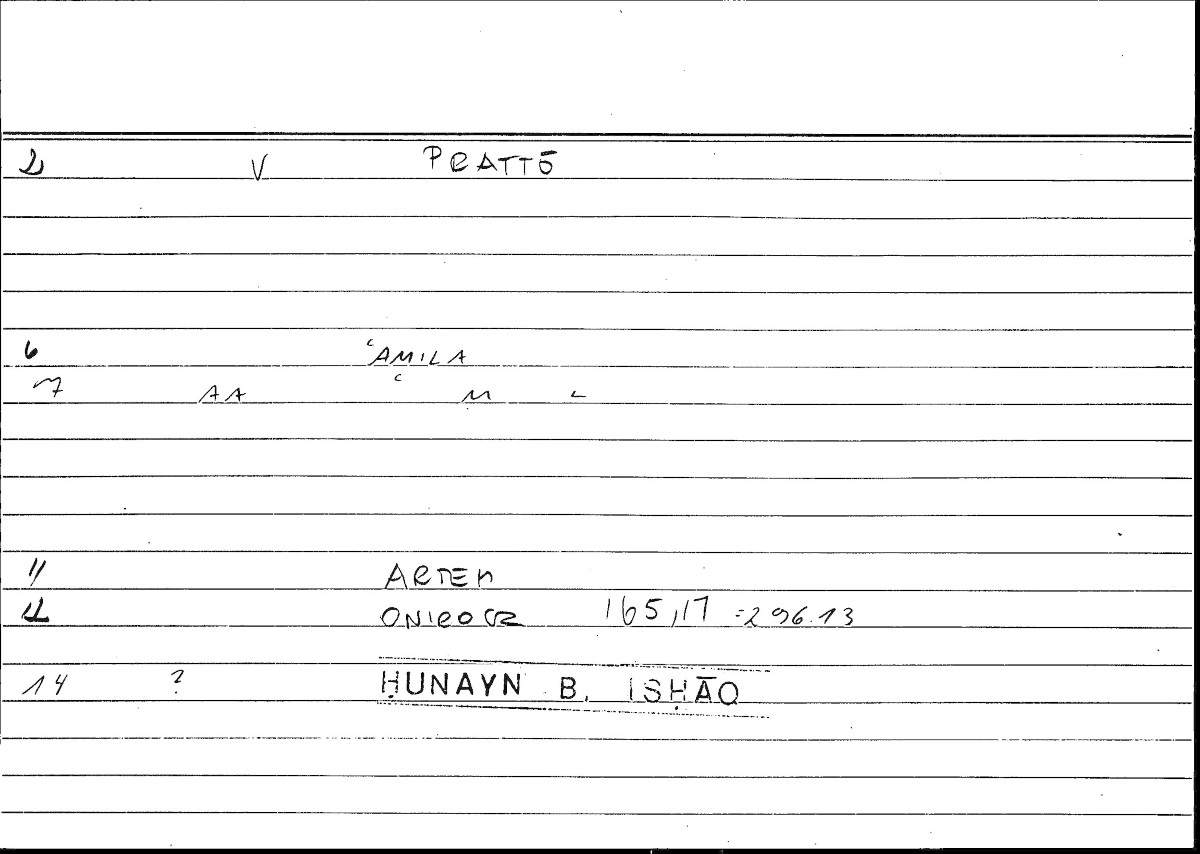 2 V PRATTŌ
6 ʿAMILA
7 AA ʿ M L
11 ARTEM
12 ONIROCR 165,17 =296.13
14 ? ḤUNAYN B. ISḤĀQ